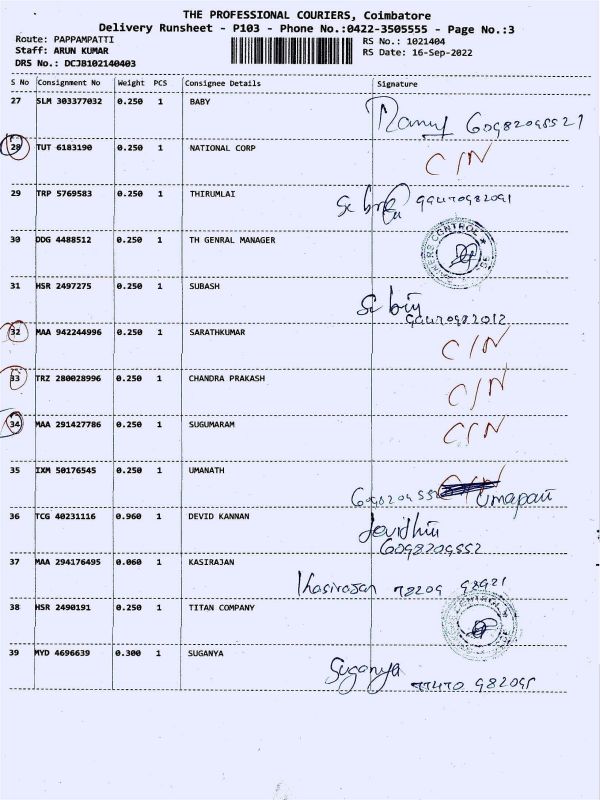 THE PROFESSIONAL COURIERS, Coimbatore
Delivery Runsheet - P103 - Phone No.:0422-3505555 - Page No.:3
Route: PAPPAMPATTI RS No.: 1021404
Staff: ARUN KUMAR RS Date: 16-Sep-2022
DRS No.: DCJB102140403
S No Consignment No Weight PCS Consignee Details Signature
27 SLM 303377032 0.250 1 BABY
28 TUT 6183190 0.250 1 NATIONAL CORP C/N
29 TRP 5769583 0.250 1 THIRUMLAI
30 DDG 4488512 0.250 1 TH GENRAL MANAGER
31 HSR 2497275 0.250 1 SUBASH
32 MAA 942244996 0.250 1 SARATHKUMAR C/N
33 TRZ 280028996 0.250 1 CHANDRA PRAKASH C/N
34 MAA 291427786 0.250 1 SUGUMARAM C/N
35 IXM 50176545 0.250 1 UMANATH
36 TCG 40231116 0.960 1 DEVID KANNAN
6098209552
37 MAA 294176495 0.060 1 KASIRAJAN
Khasirajan
38 HSR 2490191 0.250 1 TITAN COMPANY
39 MYD 4696639 0.300 1 SUGANYA
Suganya